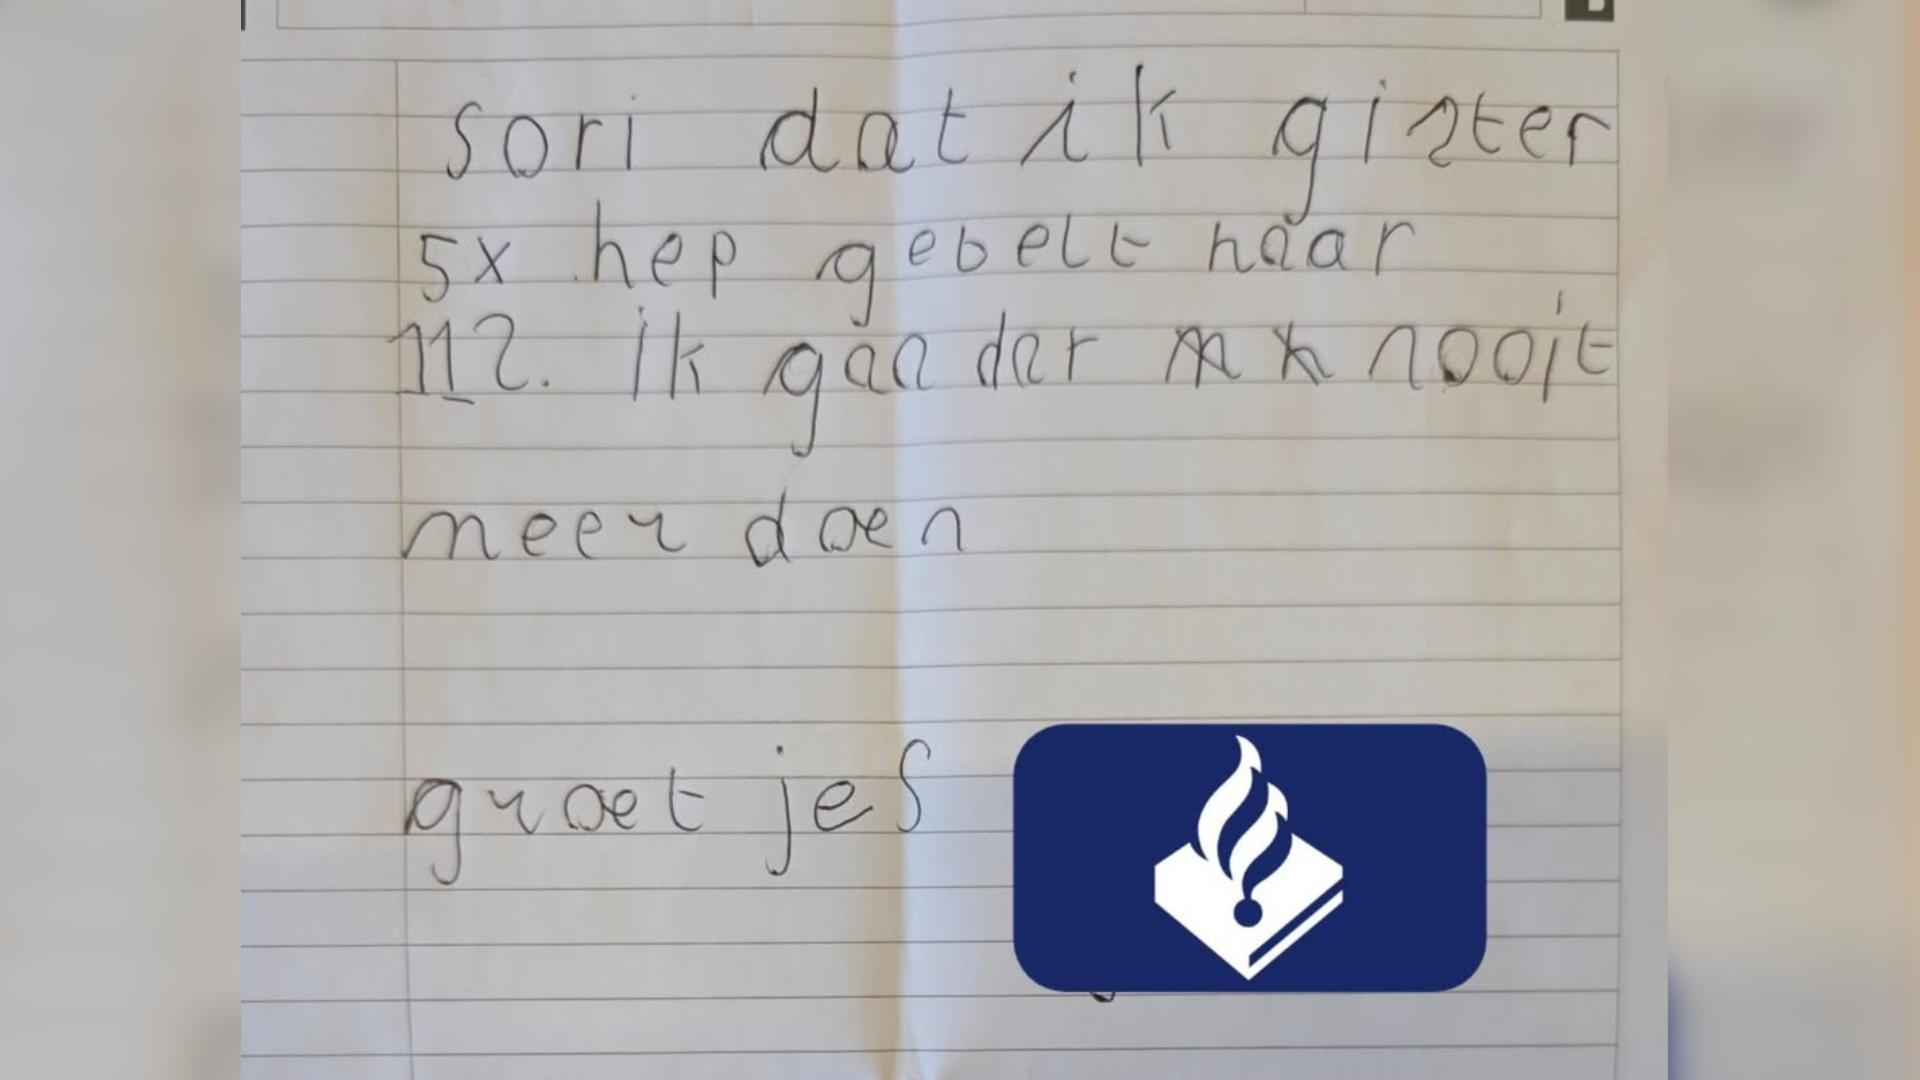 sori dat ik gister
5x hep gebelt naar
112. ik gaa dar nooit
meer doen
groetjes